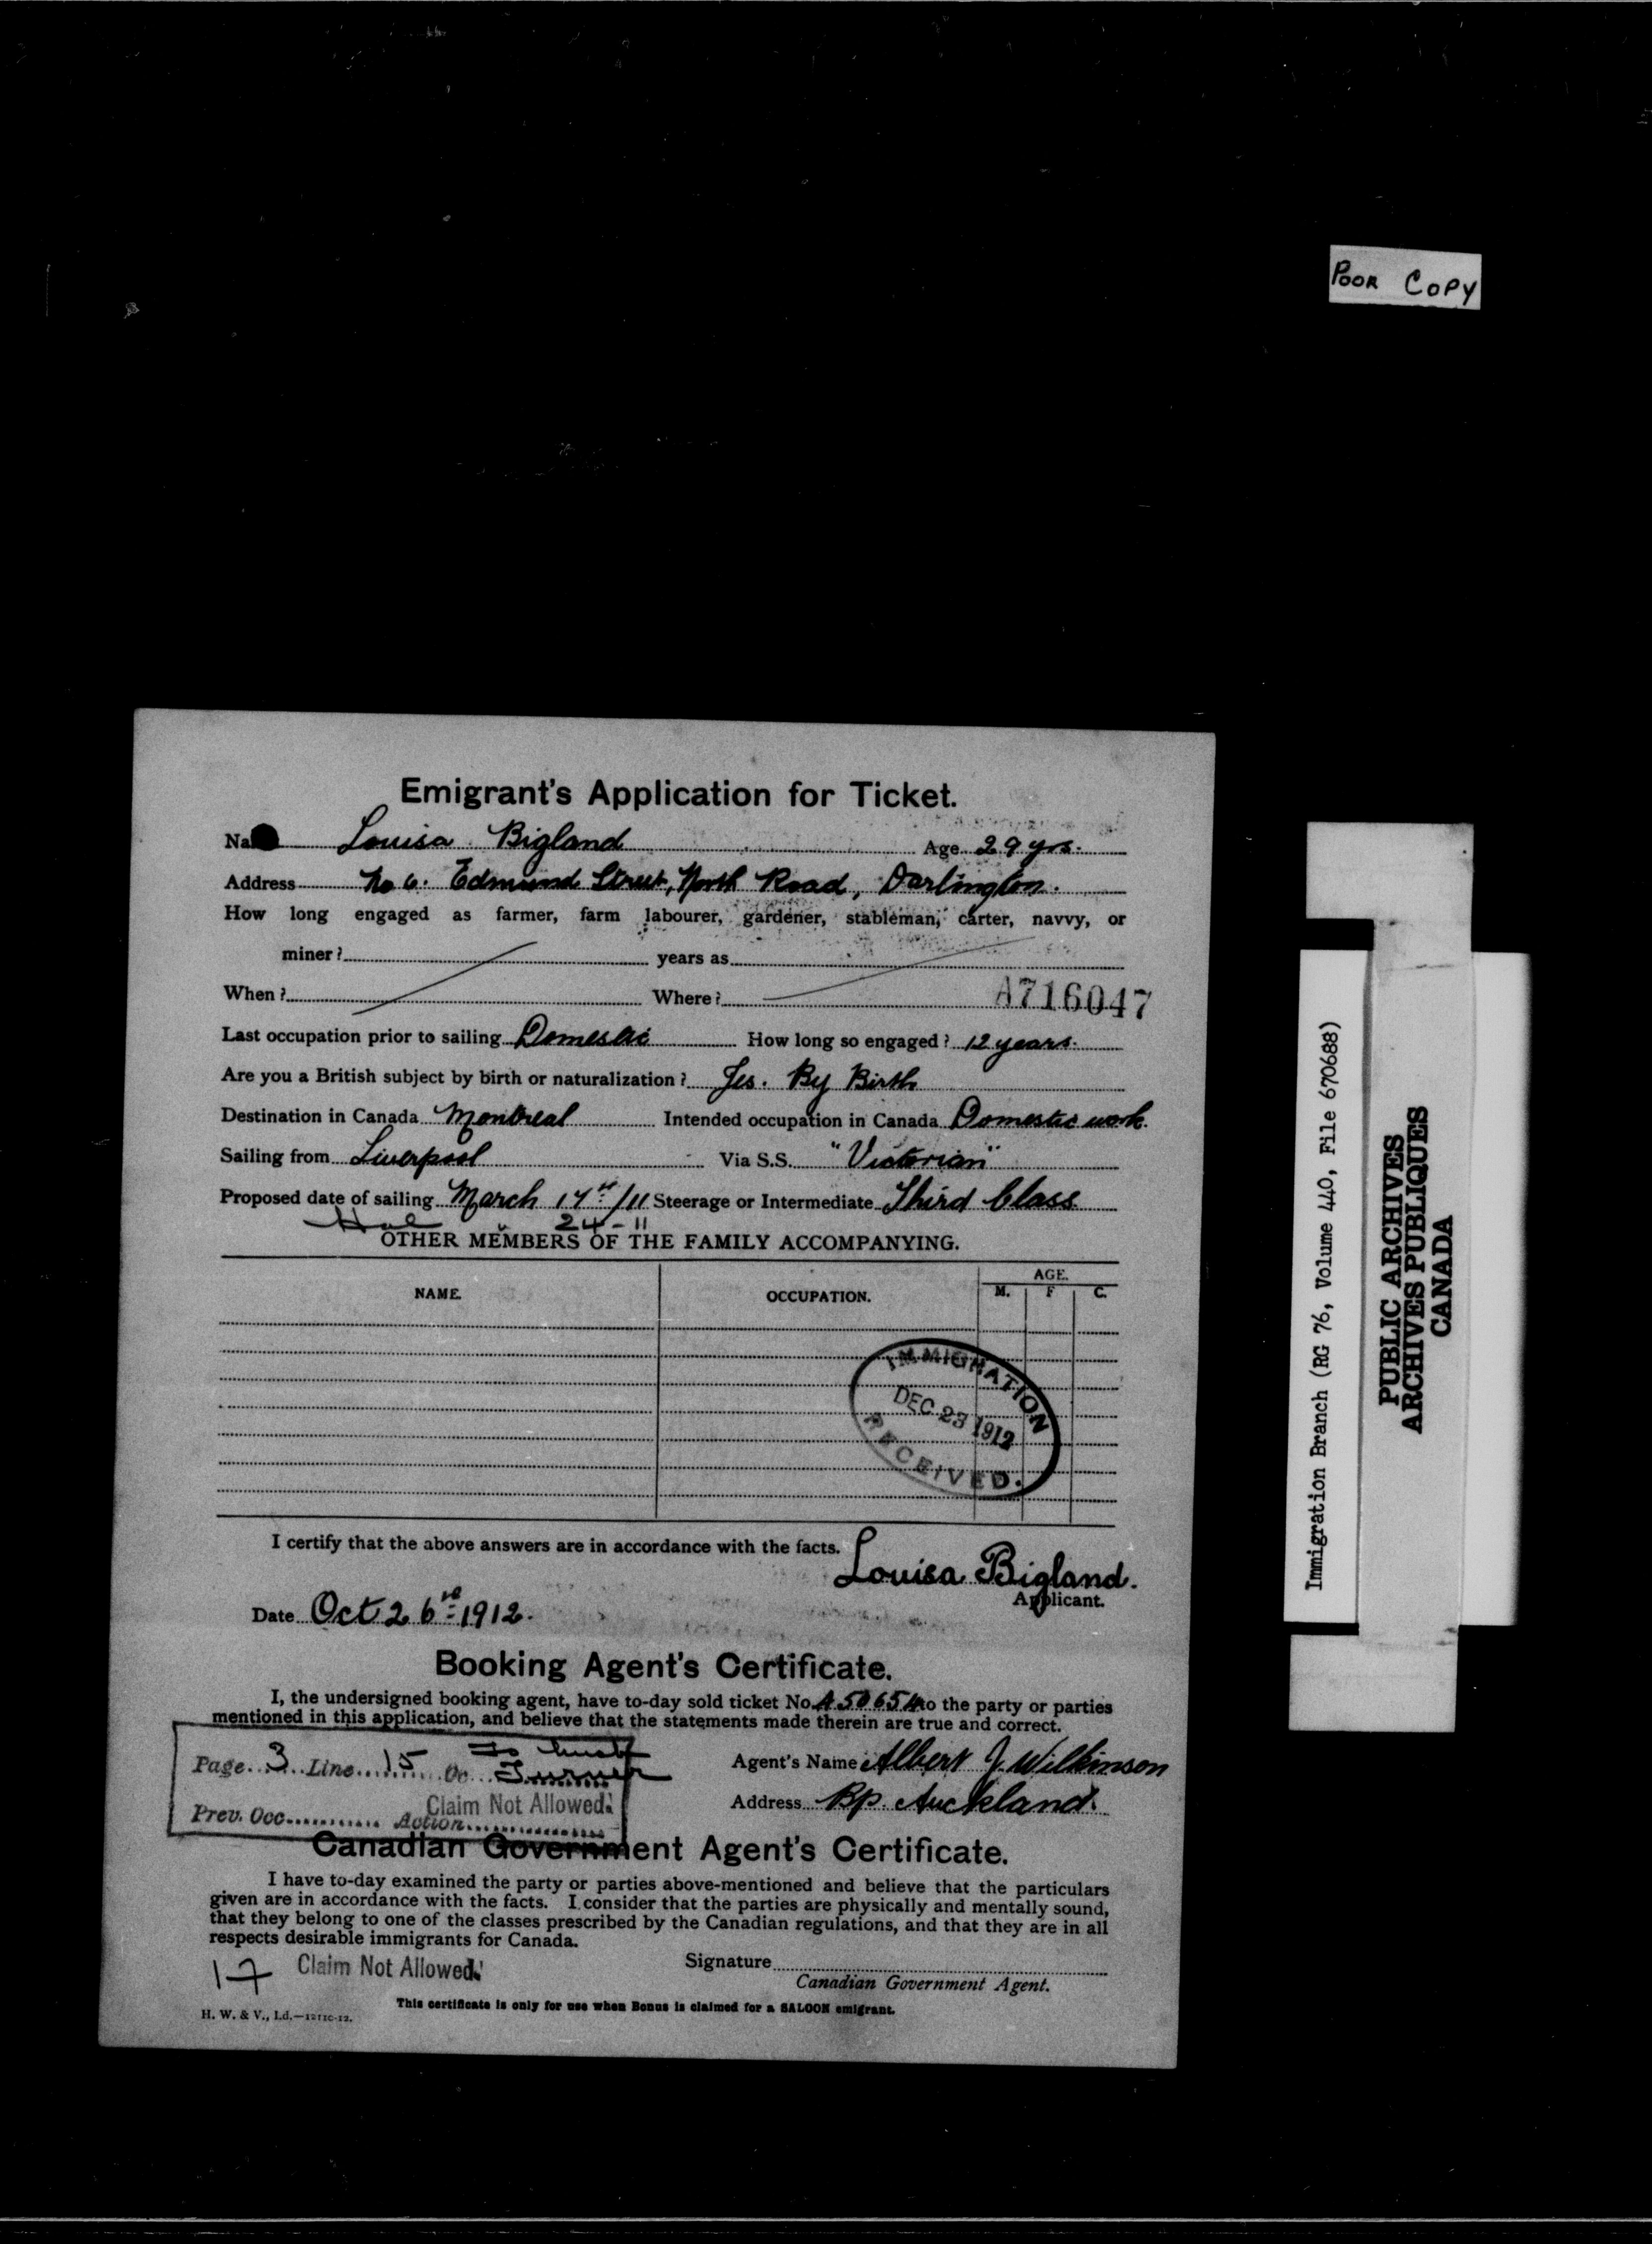 Poor Copy
Emigrant's Application for Ticket.
Na Louisa Bigland Age 29 yrs.
Address No 6. Edmund Street, North Road, Darlington.
How long engaged as farmer, farm labourer, gardener, stableman, carter, navvy, or
miner? years as
When? Where?
A716047
Last occupation prior to sailing Domestic How long so engaged? 12 years.
Are you a British subject by birth or naturalization? Yes. By Birth
Destination in Canada Montreal Intended occupation in Canada Domestic work.
Sailing from Liverpool Via S.S. "Victorian"
Proposed date of sailing March 17th/11 Steerage or Intermediate Third Class
Hal 24-11
OTHER MEMBERS OF THE FAMILY ACCOMPANYING.
NAME. OCCUPATION. AGE.
M. F C.
IMMIGRATION
DEC 23 1912
RECEIVED.
I certify that the above answers are in accordance with the facts.
Louisa Bigland.
Applicant.
Date Oct 26th 1912.
Booking Agent's Certificate.
I, the undersigned booking agent, have to-day sold ticket No. A50654 to the party or parties
mentioned in this application, and believe that the statements made therein are true and correct.
Page 3 Line 15 Oc
Prev. Occ. Action
Claim Not Allowed.
Agent's Name Albert J. Wilkinson
Address Bp. Auckland.
Canadian Government Agent's Certificate.
I have to-day examined the party or parties above-mentioned and believe that the particulars
given are in accordance with the facts. I consider that the parties are physically and mentally sound,
that they belong to one of the classes prescribed by the Canadian regulations, and that they are in all
respects desirable immigrants for Canada.
17 Claim Not Allowed.
Signature
Canadian Government Agent.
This certificate is only for use when Bonus is claimed for a SALOON emigrant.
H. W. & V., Ld.
Immigration Branch (RG 76, Volume 440, File 670688)
PUBLIC ARCHIVES
ARCHIVES PUBLIQUES
CANADA